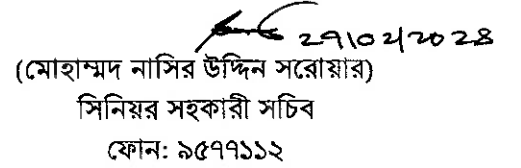 ২৭/০২/২০২৪
(মোহাম্মদ নাসির উদ্দিন সরোয়ার)
সিনিয়র সহকারী সচিব
ফোন: ৯৫৭৭১১২